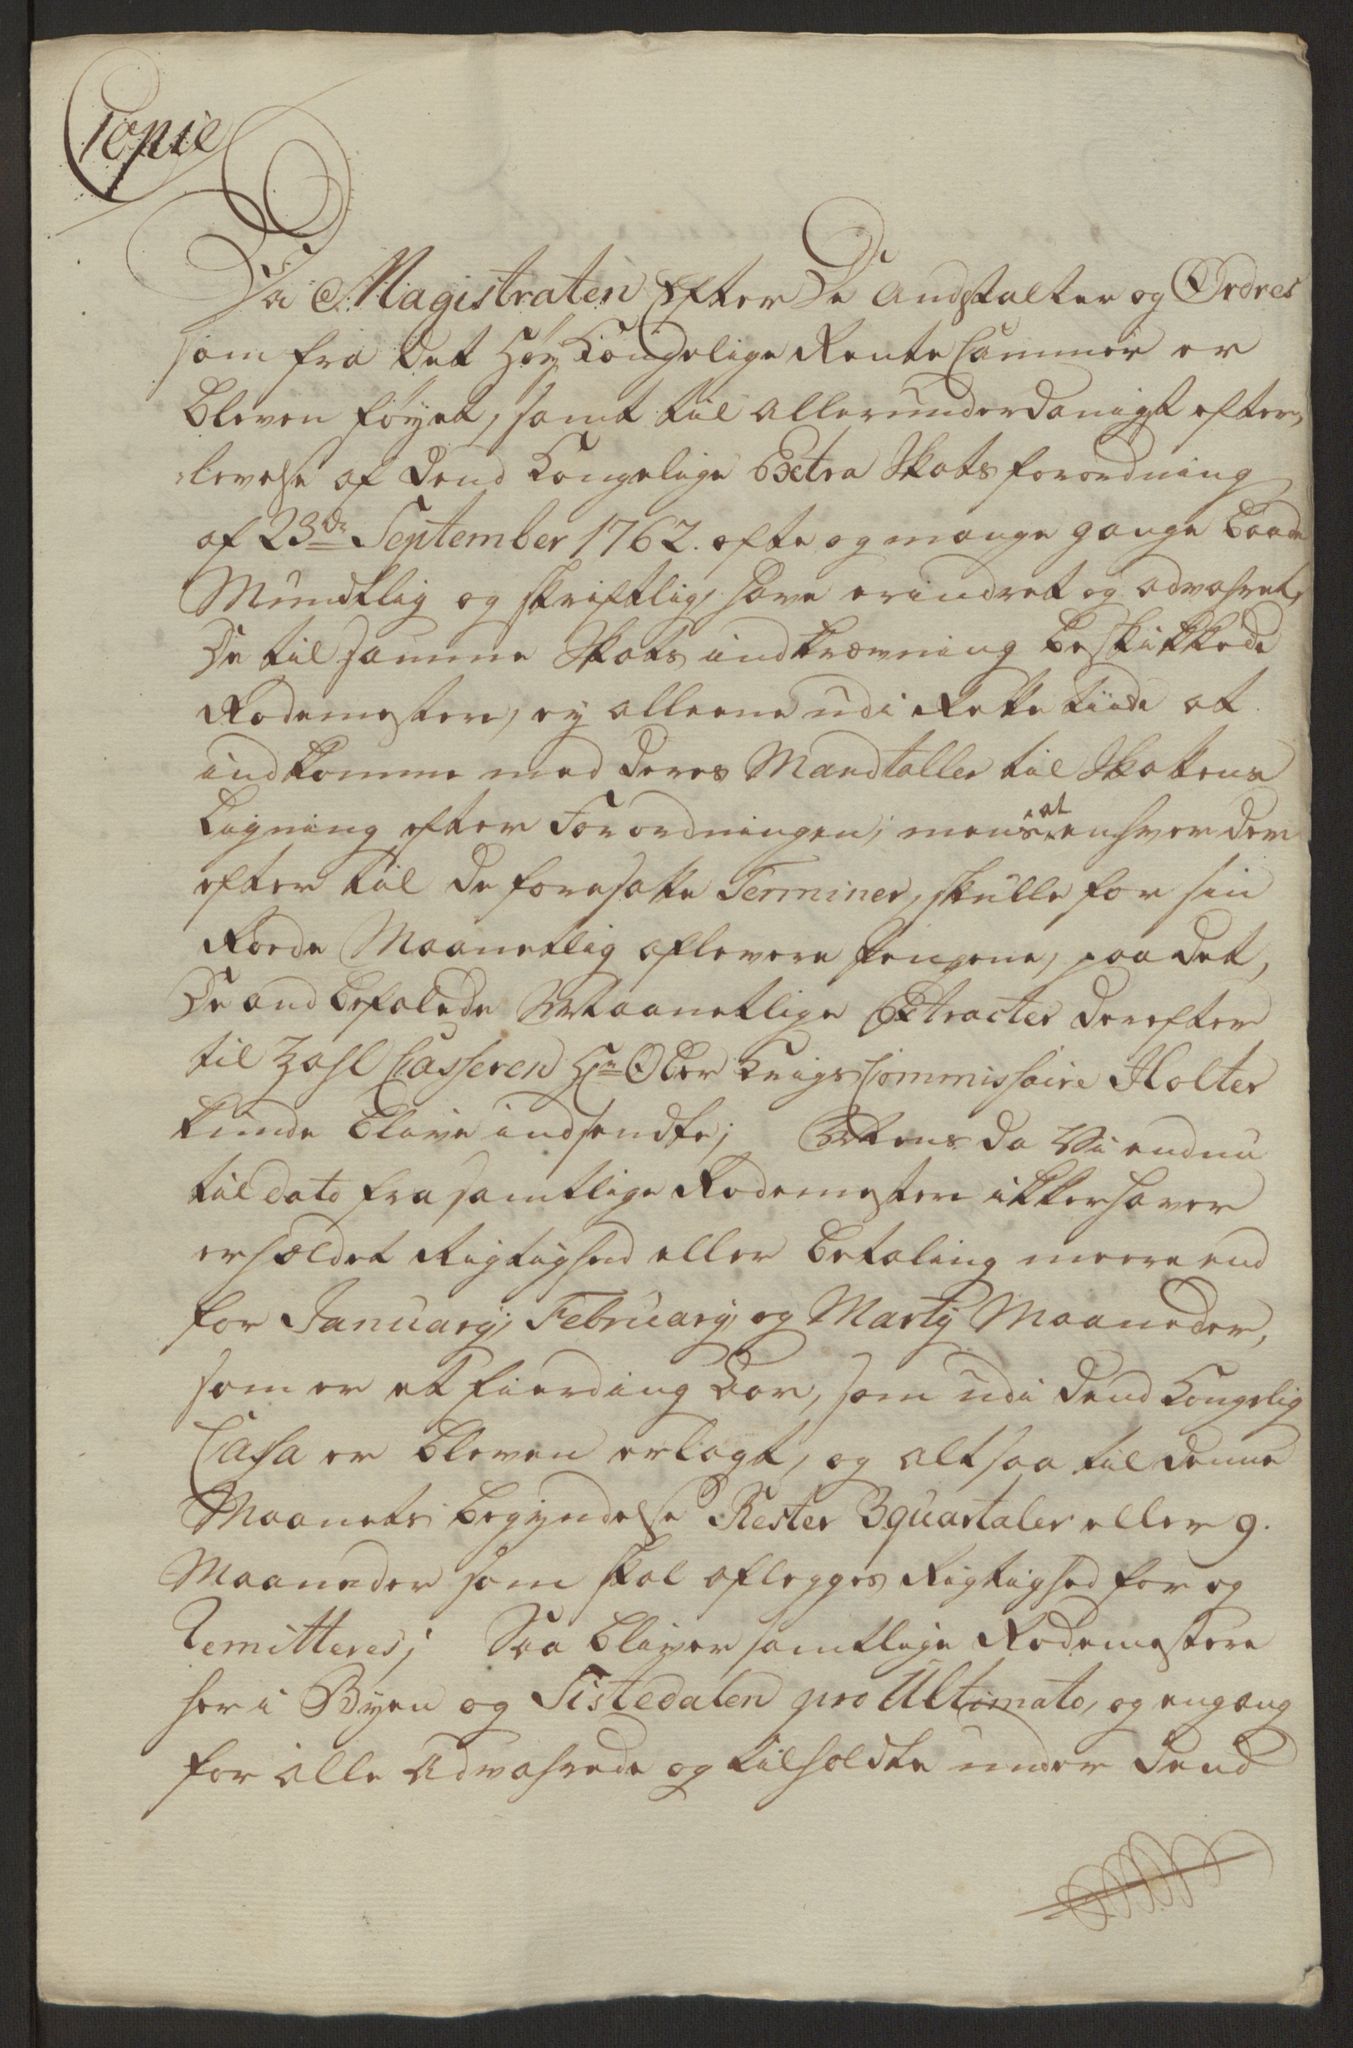 Copie
Da Magistraten Efter De Andstalter og Ordres
som fra Det Høy Kongelige Rente Cammer er
bleven føyet, samt til allerunderdanigst efter,
levelse af dend Kongelige Extra Skats forordning
af 23de September 1762. ofte og mange gange baade
Mundtlig og skriftlig, have erindret og advahret,
De til samme Skats indkrævning beskikkede
Rodemestere, ey alleene udi Rette tiide at
indkomme med deres Mandtaller til Skattens
Ligning efter Forordningen; mens at enhver der
efter til de foresatte Terminer, skulle for sin
Roede Maanetlig aflevere pengene, paa det,
De andbefalede Maanetlige Extracter derefter
til Zahl Casseren Hr Ober Krigs Commissaire Holter
kunde blive indsendte; Mens da Vi endnu
til dato fra samtlige Rodemestere ikke haver
erholdet Rigtighed eller betaling meere end
for January, February og Marty Maaneder,
som er et fierding Aar, som udi dend Kongelig
Cassa er bleven erlagt, og altsaa til denne
Maanets begyndelse Rester 3 quartaler eller 9.
Maaneder som skal aflegges Rigtighed for og
Remitteres; Saa bliver samtlige Rodemestere
her i Byen og Tistedalen pro Ultimato, og engang
for alle Advahrede og tilholdte under dend